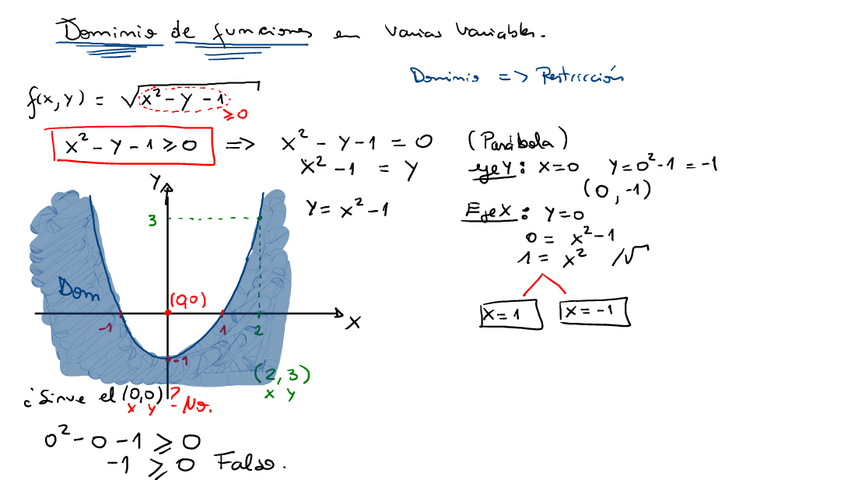 Dominio de funciones en varias variables.
Dominio => Restricción
f(x,y) = √x² - y - 1
≥0
x² - y - 1 ≥ 0 => x² - y - 1 = 0 (Parábola)
x² - 1 = y
y = x² - 1
eje y: x=0 y = 0² - 1 = -1
(0, -1)
Eje x: y=0
0 = x² - 1
1 = x² /√
x = 1 x = -1
y
3
Dom
(0,0)
-1 1 2 x
-1
(2, 3)
x y
¿Sirve el (0,0)? - No.
x y
0² - 0 - 1 ≥ 0
-1 ≥ 0 Falso.